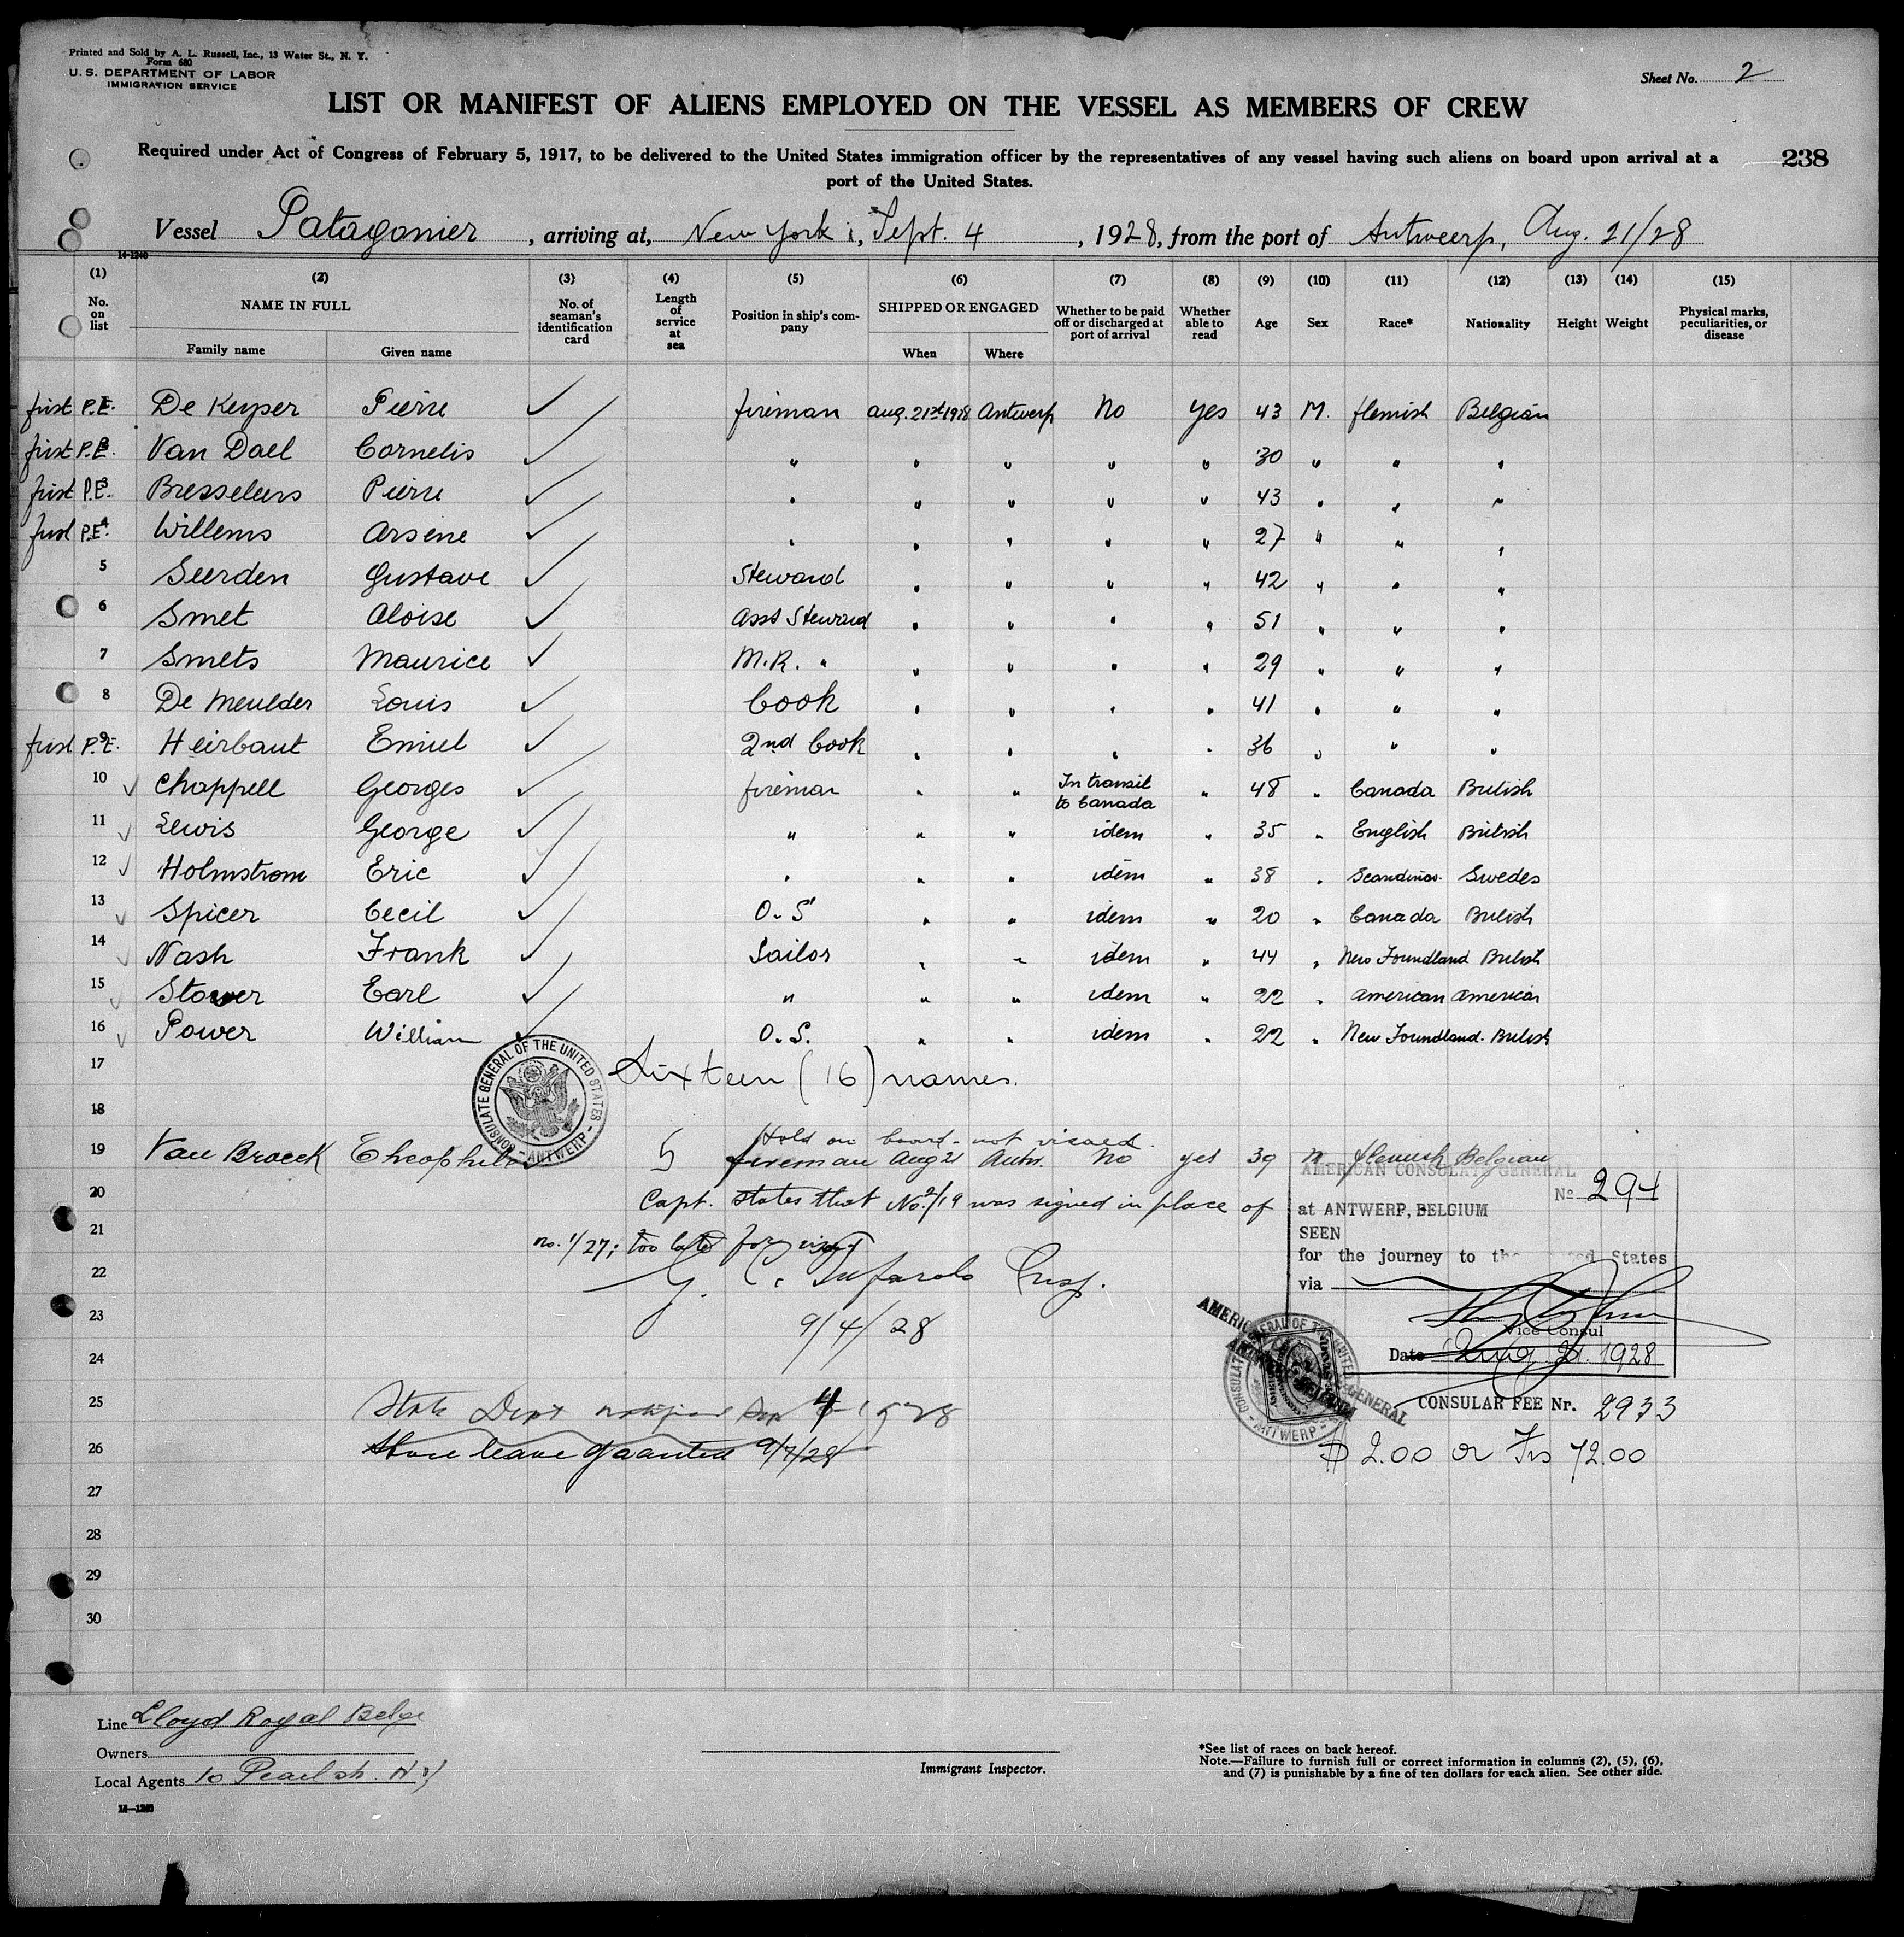 Printed and Sold by A. L. Russell, Inc., 13 Water St., N. Y.
Form 680
U. S. DEPARTMENT OF LABOR
IMMIGRATION SERVICE
Sheet No. 2
LIST OR MANIFEST OF ALIENS EMPLOYED ON THE VESSEL AS MEMBERS OF CREW
Required under Act of Congress of February 5, 1917, to be delivered to the United States immigration officer by the representatives of any vessel having such aliens on board upon arrival at a
port of the United States.
238
Vessel Patagonier, arriving at, New York, Sept. 4, 1928, from the port of Antwerp, Aug. 21/28
14-1240
(1) (2) (3) (4) (5) (6) (7) (8) (9) (10) (11) (12) (13) (14) (15)
No. on list NAME IN FULL Family name Given name No. of seaman's identification card Length of service at sea Position in ship's company SHIPPED OR ENGAGED When Where Whether to be paid off or discharged at port of arrival Whether able to read Age Sex Race* Nationality Height Weight Physical marks, peculiarities, or disease
first P.E. De Keyser Pierre ✓ fireman aug. 21st 1928 Antwerp No Yes 43 M. flemish Belgian
first P.E. 2 Van Dael Cornelis ✓ " " " " " 30 " " "
first P.E. 3 Bresseleers Pierre ✓ " " " " " 43 " " "
first P.E. 4 Willems Arsene ✓ " " " " " 27 " " "
5 Seerden Gustave ✓ Steward " " " " 42 " " "
6 Smet Aloise ✓ Asst Steward " " " " 51 " " "
7 Smets Maurice ✓ M.R. " " " " " 29 " " "
8 De Meulder Louis ✓ Cook " " " " 41 " " "
first P.E. 9 Heirbaut Emiel ✓ 2nd Cook " " " " 36 " " "
10 ✓ Chappell Georges ✓ fireman " " In transit to Canada " 48 " Canada British
11 ✓ Lewis George ✓ " " " idem " 35 " English British
12 ✓ Holmstrom Eric ✓ " " " idem " 38 " Scandinav. Swedes
13 ✓ Spicer Cecil ✓ O. S " " idem " 20 " Canada British
14 ✓ Nash Frank ✓ Sailor " " idem " 44 " New Foundland British
15 ✓ Stower Earl ✓ " " " idem " 22 " American American
16 ✓ Power William ✓ O. S. " " idem " 22 " New Foundland. British
17 Sixteen (16) names.
CONSULATE GENERAL OF THE UNITED STATES - ANTWERP -
18
Hold on board - not visaed.
19 Van Broeck Theophile 5 fireman Aug 21 Antw. No yes 39 m flemish Belgian
20 Capt. states that No. 2/19 was signed in place of
21 no. 1/27; too late for visa
22 Insp.
23 9/4/28
24
25 State Dept notified Sep 4 1928
26 Shore leave granted 9/7/28
27
28
29
30
AMERICAN CONSULATE GENERAL
No 294
at ANTWERP, BELGIUM
SEEN
for the journey to the United States
via
Vice Consul
Date Aug. 21. 1928
CONSULAR FEE Nr. 2933
$ 2.00 or Frs 72.00
Line Lloyd Royal Belge
Owners
Local Agents 10 Pearl st. N Y
Immigrant Inspector.
*See list of races on back hereof.
Note.—Failure to furnish full or correct information in columns (2), (5), (6),
and (7) is punishable by a fine of ten dollars for each alien. See other side.
14—1240